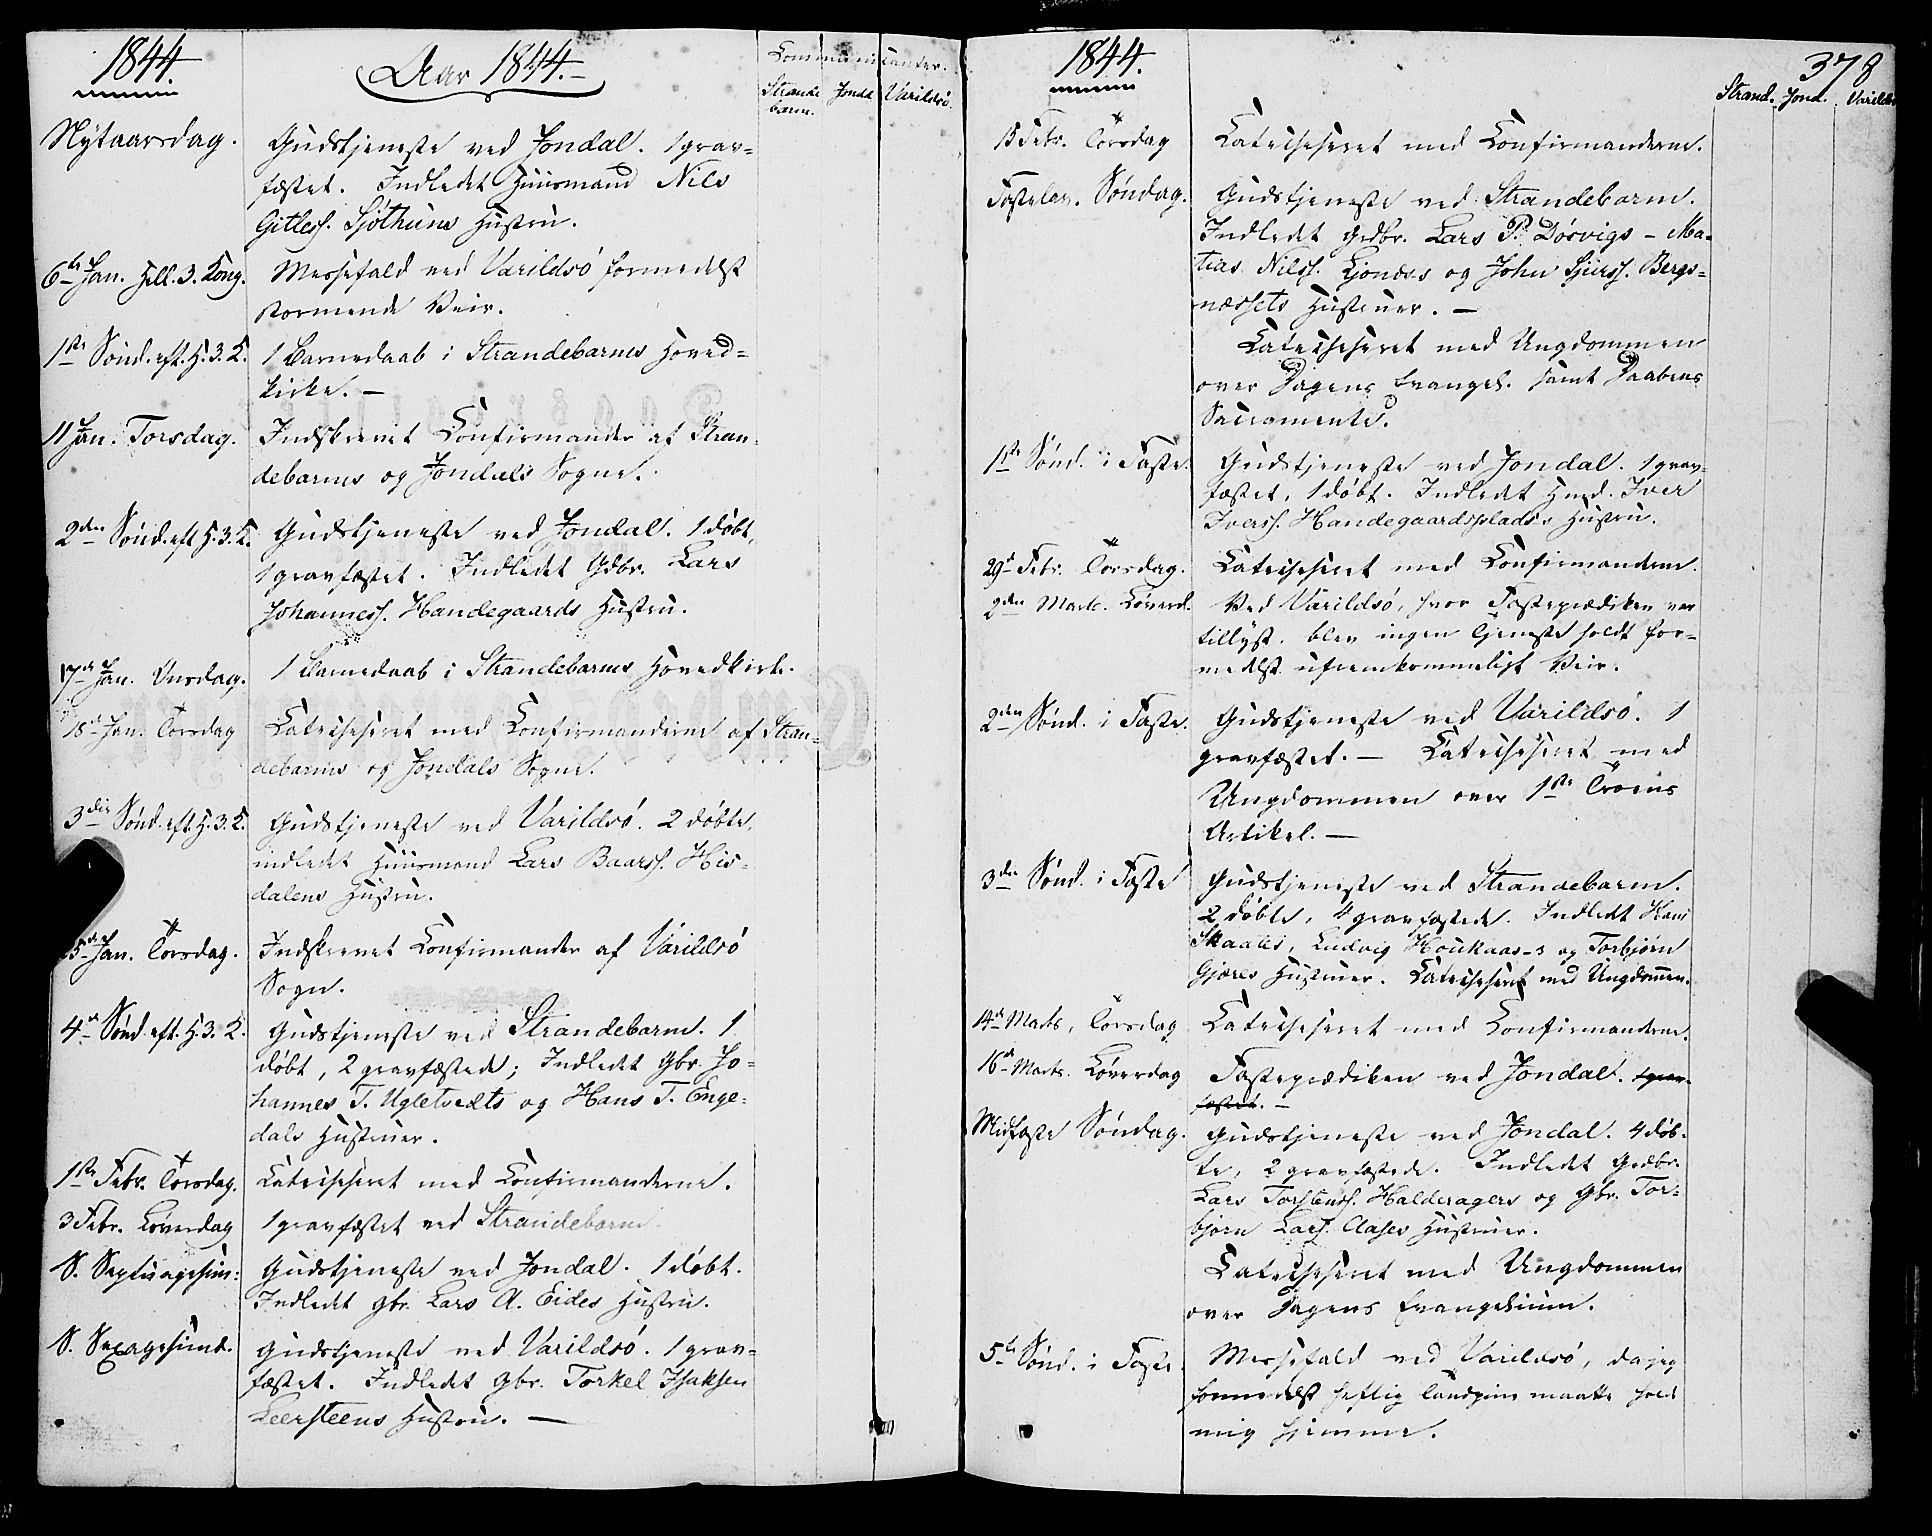 1844.
Aar 1844.
Communicanter.
Strande
barm.
Jondl
Varildsö.
Nytaarsdag.
Gudstjeneste ved Jondal. 1 grav-
fæstet. Indledet Huusmand Nils
Gitless. Sjöthuns Hustru.
6te Jan. Hell. 3. Kong.
Messefald ved Varildsö formedelst
stormende Veir.
1ste Sönd. eft. H. 3. K.
1 Barnedaab i Strandebarms Hoved-
kirke. —
11 Jan. Torsdag.
Indskrevet Confirmander af Stran-
debarms og Jondals Sogne.
2den Sönd. eft H. 3. K.
Gudstjeneste ved Jondal. 1 döbt,
1 gravfæstet. Indledet Gdbr. Lars
Johanness. Handegaards Hustru.
17de Jan. Onsdag.
1 Barnedaab i Strandebarms Hovedkirke.
18de Jan. Torsdag
Catechiseret med Confirmanderne af Stran-
debarms og Jondals Sogne.
3die Sönd. eft. H. 3. K.
Gudstjeneste ved Varildsö. 2 döbte,
indledet Huusmand Lars Baarss. His-
dalens Hustru.
25de Jan. Torsdag.
Indskrevet Confirmander af Varildsö
Sogn.
4de Sönd. eft. H. 3. K.
Gudstjeneste ved Strandebarm. 1
döbt, 2 gravfæstede; Indledet Gbr. Jo-
hannes T. Ugletvedts og Hans T. Enge-
dals Hustruer.
1ste Febr. Torsdag.
Catechiseret med Confirmanderne.
3 Febr. Löverdag
1 gravfæstet ved Strandebarm.
S. Septuagesim:
Gudstjeneste ved Jondal. 1 döbt.
Indledet Gbr. Lars A. Eides Hustru.
S. Sexagesimæ.
Gudstjeneste ved Varildsö. 1 grav-
fæstet. Indledet Gbr. Torkel Isaksen
Leersteens Hustru. —
1844.
378
Strand. Jond. Varildsö
15 Febr. Torsdag
Catechiseret med Confirmanderne.
Fastelav. Söndag.
Gudstjeneste ved Strandebarm.
Indledet Grdbr. Lars P. Dörvigs – Ma-
tias Nilss. Ljonæs og John Sjurss. Bergs-
næssets Hustruer. —
Catechiseret med Ungdommen
over Dagens Evangel. samt Daabens
Sacramente.
1ste Sönd. i Faste.
Gudstjeneste ved Jondal. 1 grav-
fæstet, 1 döbt. Indledet Hmd. Iver
Iverss. Handegaardsplads's Hustru.
29de Febr. Torsdag.
Catechiseret med Confirmanderne.
2den Marts. Löverd.
Ved Varildsö, hvor Fasteprædiken var
tillyst. blev ingen Tjeneste holdt for-
medelst ufremkommeligt Veir.
2den Sönd. i Faste.
Gudstjeneste ved Varildsö. 1
gravfæstet. — Catechiseret med
Ungdommen over 1ste Troens
Artikel. —
3die Sönd. i Faste
Gudstjeneste ved Strandebarm.
2 döbte, 4 gravfæstede. Indledet Hans
Skaales, Ludvig Houkaas-s og Torbjörn
Gjæres Hustruer. Catechiseret med Ungdommen.
14de Marts, Torsdag
Catechiseret med Confirmanderne.
16de Marts. Löverdag
Fasteprædiken ved Jondal. 1 grav-
fæstet. —
Midfaste Söndag.
Gudstjeneste ved Jondal. 4 döb-
te, 2 gravfæstede. Indledet Grdbr.
Lars Torstenss. Halderagers og Gbr. Tor-
björn Larss. Aases Hustruer.
Catechiseret med Ungdommen
over Dagens Evangelium.
5te Sönd. i Faste.
Messefald ved Varildsö, da jeg
formedelst heftig Tandpine maatte holde
mig hjemme.